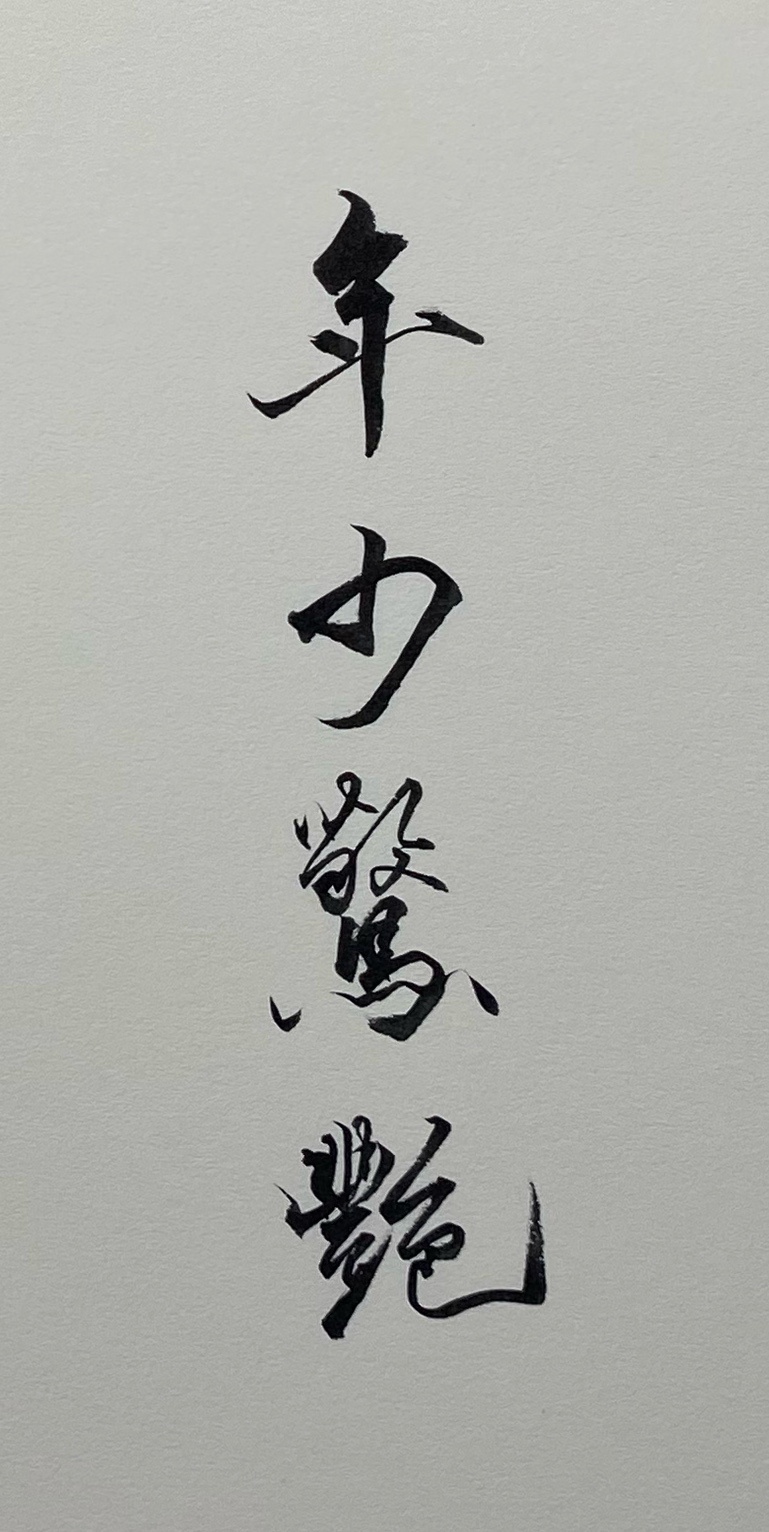 年少驚艷